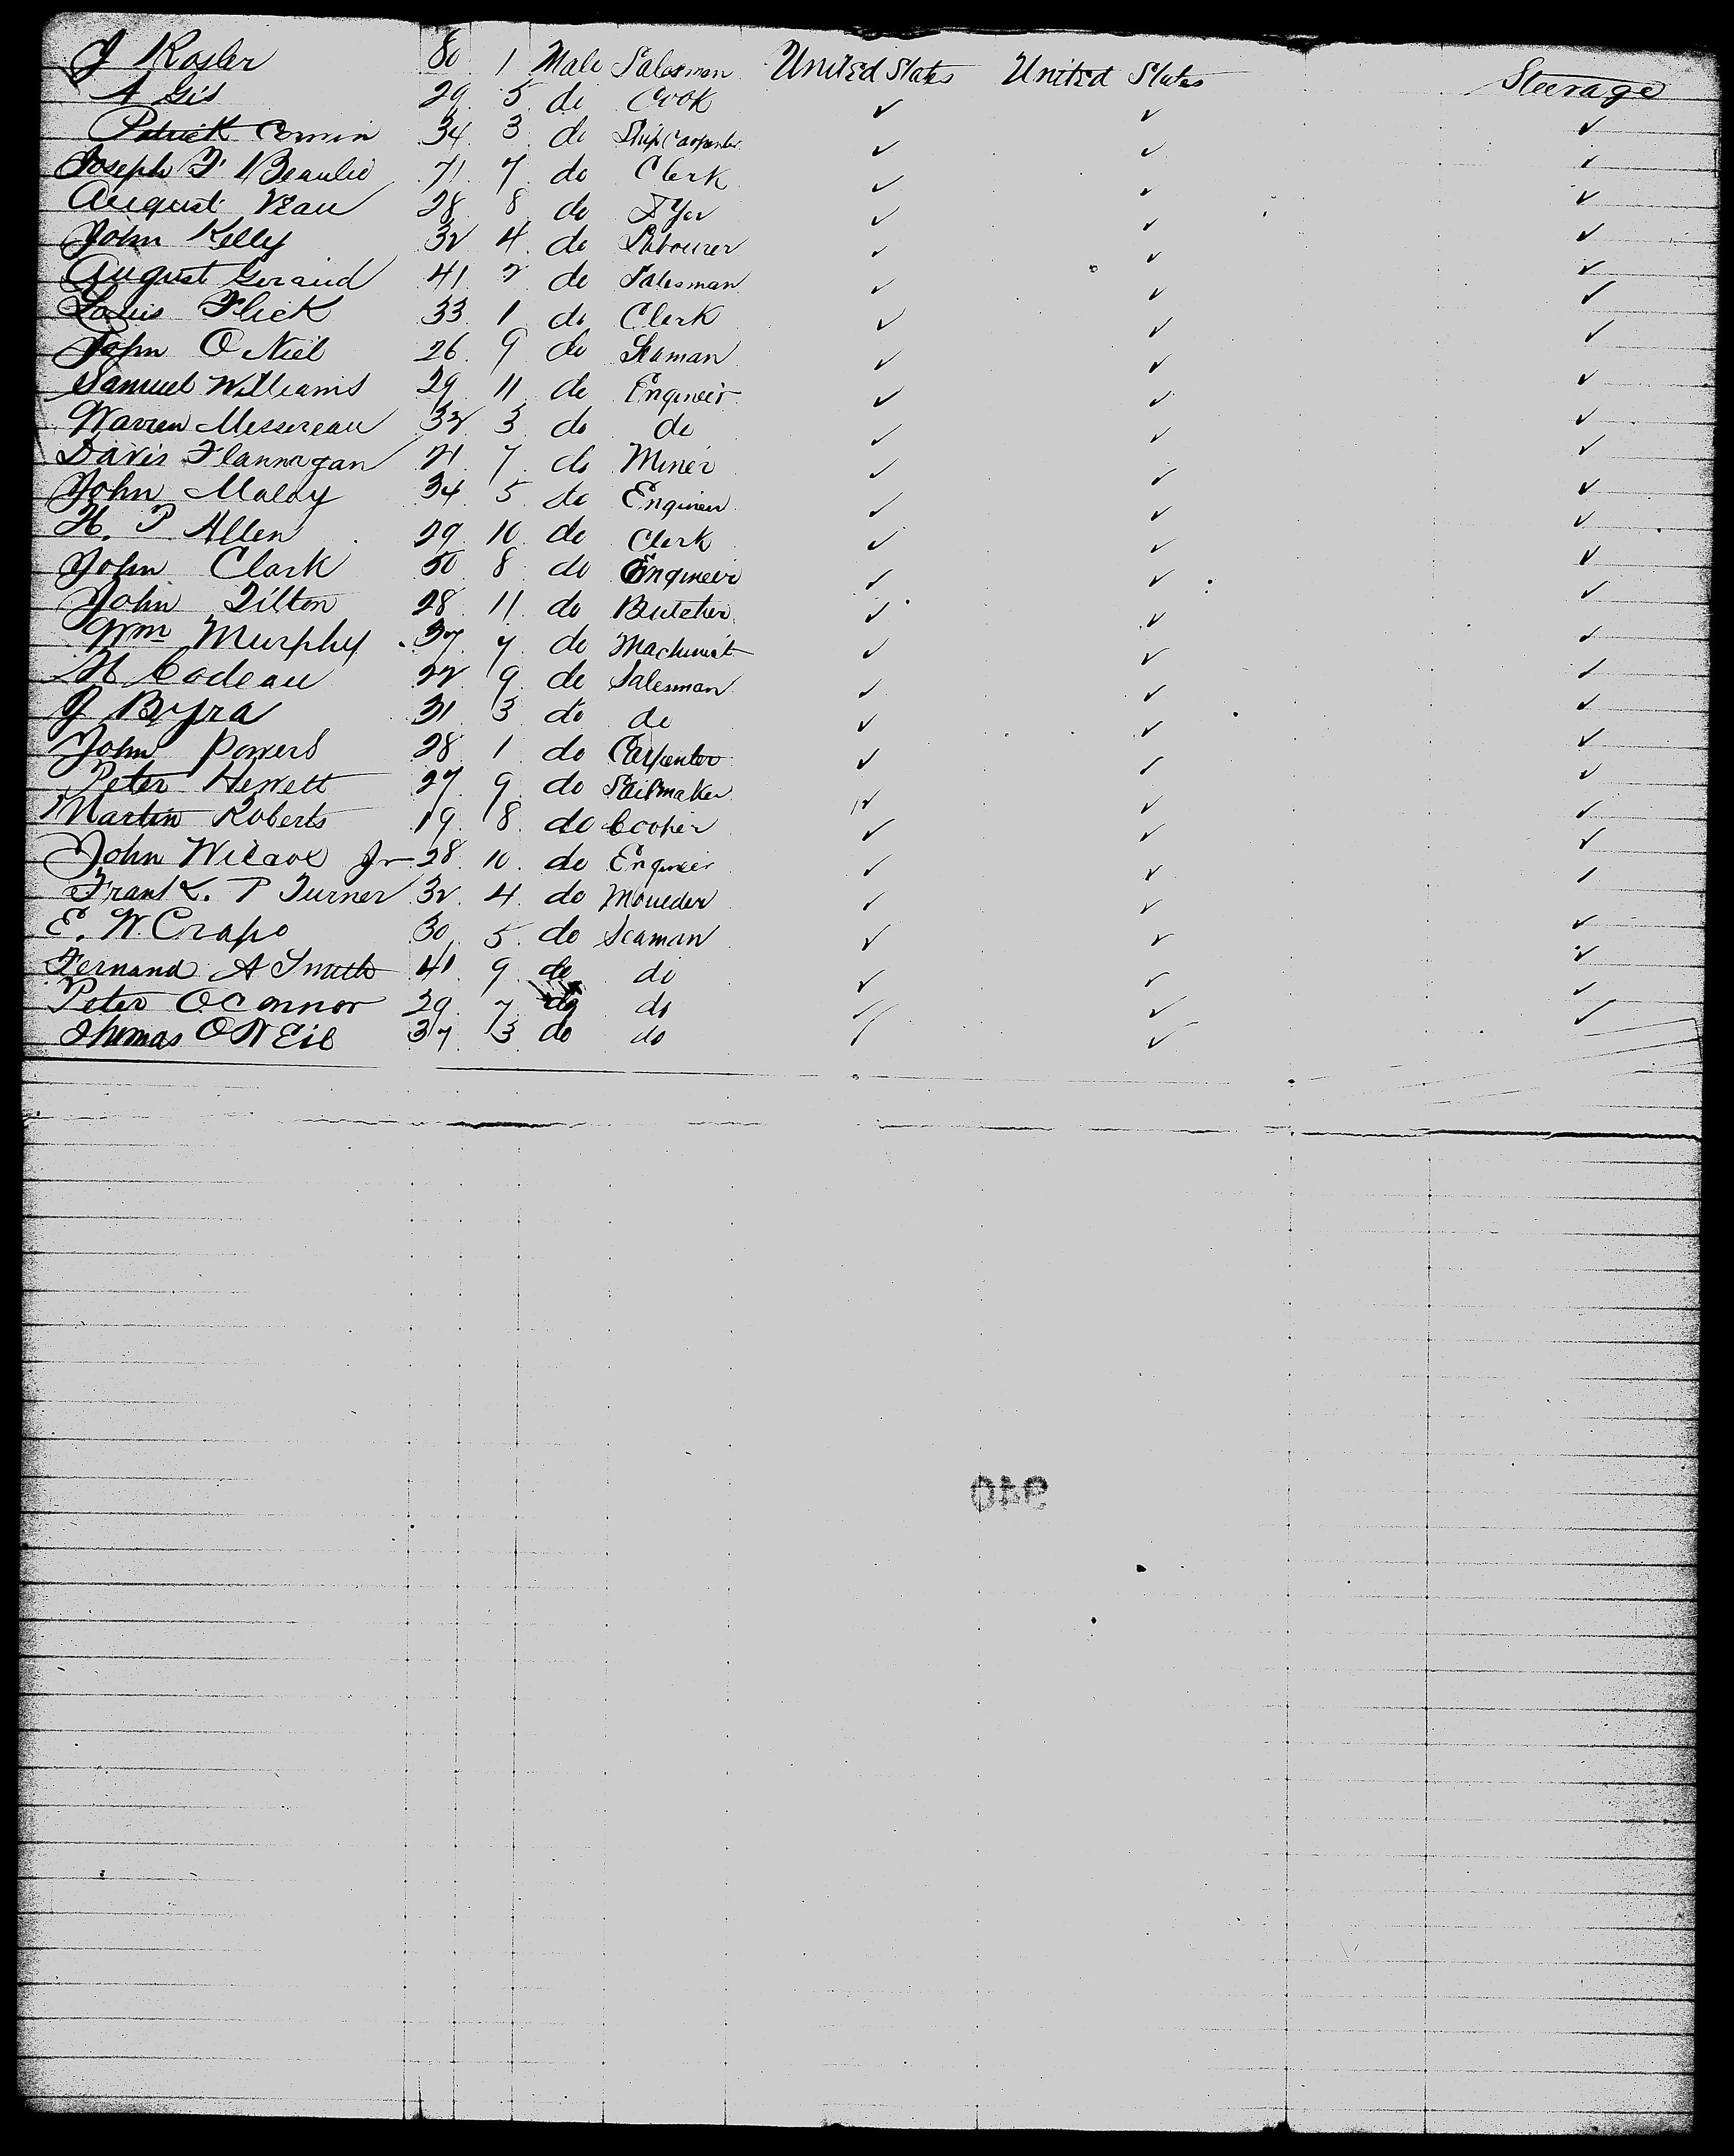 J Rosler 80 1 Male Salesman United States United States Steerage
A Gis 29 5 do Cook ✓ ✓ ✓
Patrick 34 3 do Ship Carpenter ✓ ✓ ✓
Joseph F Beaulie 71 7 do Clerk ✓ ✓ ✓
August Veau 28 8 do Dyer ✓ ✓ ✓
John Kelly 32 4 do Labourer ✓ ✓ ✓
August Geraud 41 2 do Salesman ✓ ✓ ✓
Louis Flick 33 1 do Clerk ✓ ✓ ✓
John O Niel 26 9 do Seaman ✓ ✓ ✓
Samuel Williams 29 11 do Engineer ✓ ✓ ✓
Warren Messereau 32 3 do do ✓ ✓ ✓
Davis Flannagan 21 7 do Miner ✓ ✓ ✓
John Maloy 34 5 do Engineer ✓ ✓ ✓
H. P Allen 29 10 do Clerk ✓ ✓ ✓
John Clark 50 8 do Engineer ✓ ✓ ✓
John Tilton 28 11 do Butcher ✓ ✓ ✓
Wm Murphy 37 7 do Machinist ✓ ✓ ✓
H Codeau 22 9 do Salesman ✓ ✓ ✓
J Byra 31 3 do do ✓ ✓ ✓
John Powers 28 1 do Carpenter ✓ ✓ ✓
Peter Hewett 27 9 do Sailmaker ✓ ✓ ✓
Martin Roberts 19 8 do Cooper ✓ ✓ ✓
John Wilcox Jr 28 10 do Engineer ✓ ✓ ✓
Frank L. P Turner 32 4 do Moulder ✓ ✓ ✓
E. W. Crapo 30 5 do Seaman ✓ ✓ ✓
Fernand A Smith 41 9 do do ✓ ✓ ✓
Peter OConnor 29 7 do do ✓ ✓ ✓
Thomas ONEil 37 3 do do ✓ ✓